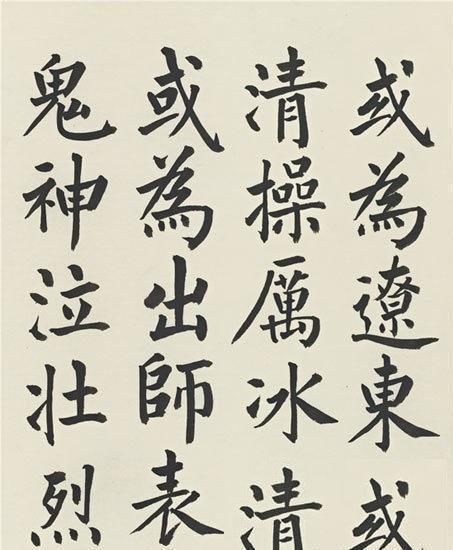 或為遼東或
清操厲冰清
或為出師表
鬼神泣壯烈